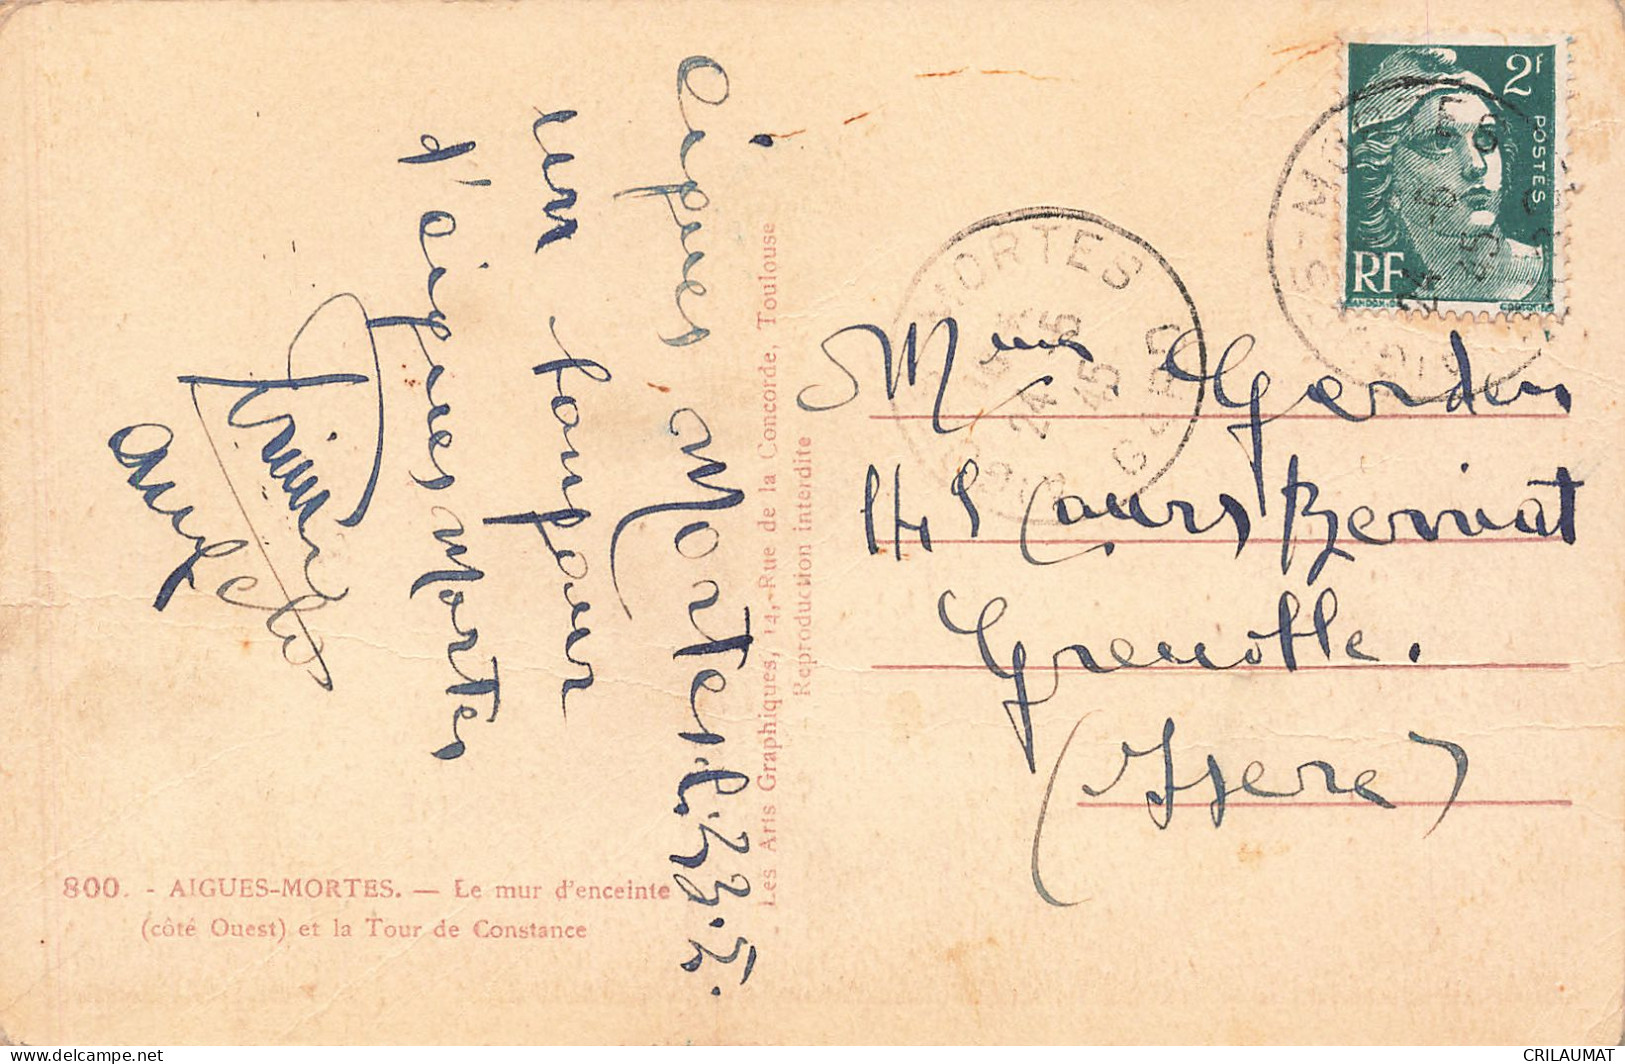 Aigues Mortes le 23.5.
un bonjour
d'Aigues Mortes
800. - AIGUES-MORTES. — Le mur d'enceinte
(côté Ouest) et la Tour de Constance
Les Arts Graphiques, 14, Rue de la Concorde, Toulouse
Reproduction interdite
2F
POSTES
RF
MORTES
24 5
45
GARD
Mme Gerden
148 Cours Berriat
Grenoble.
(Isere)
delcampe.net
CRILAUMAT